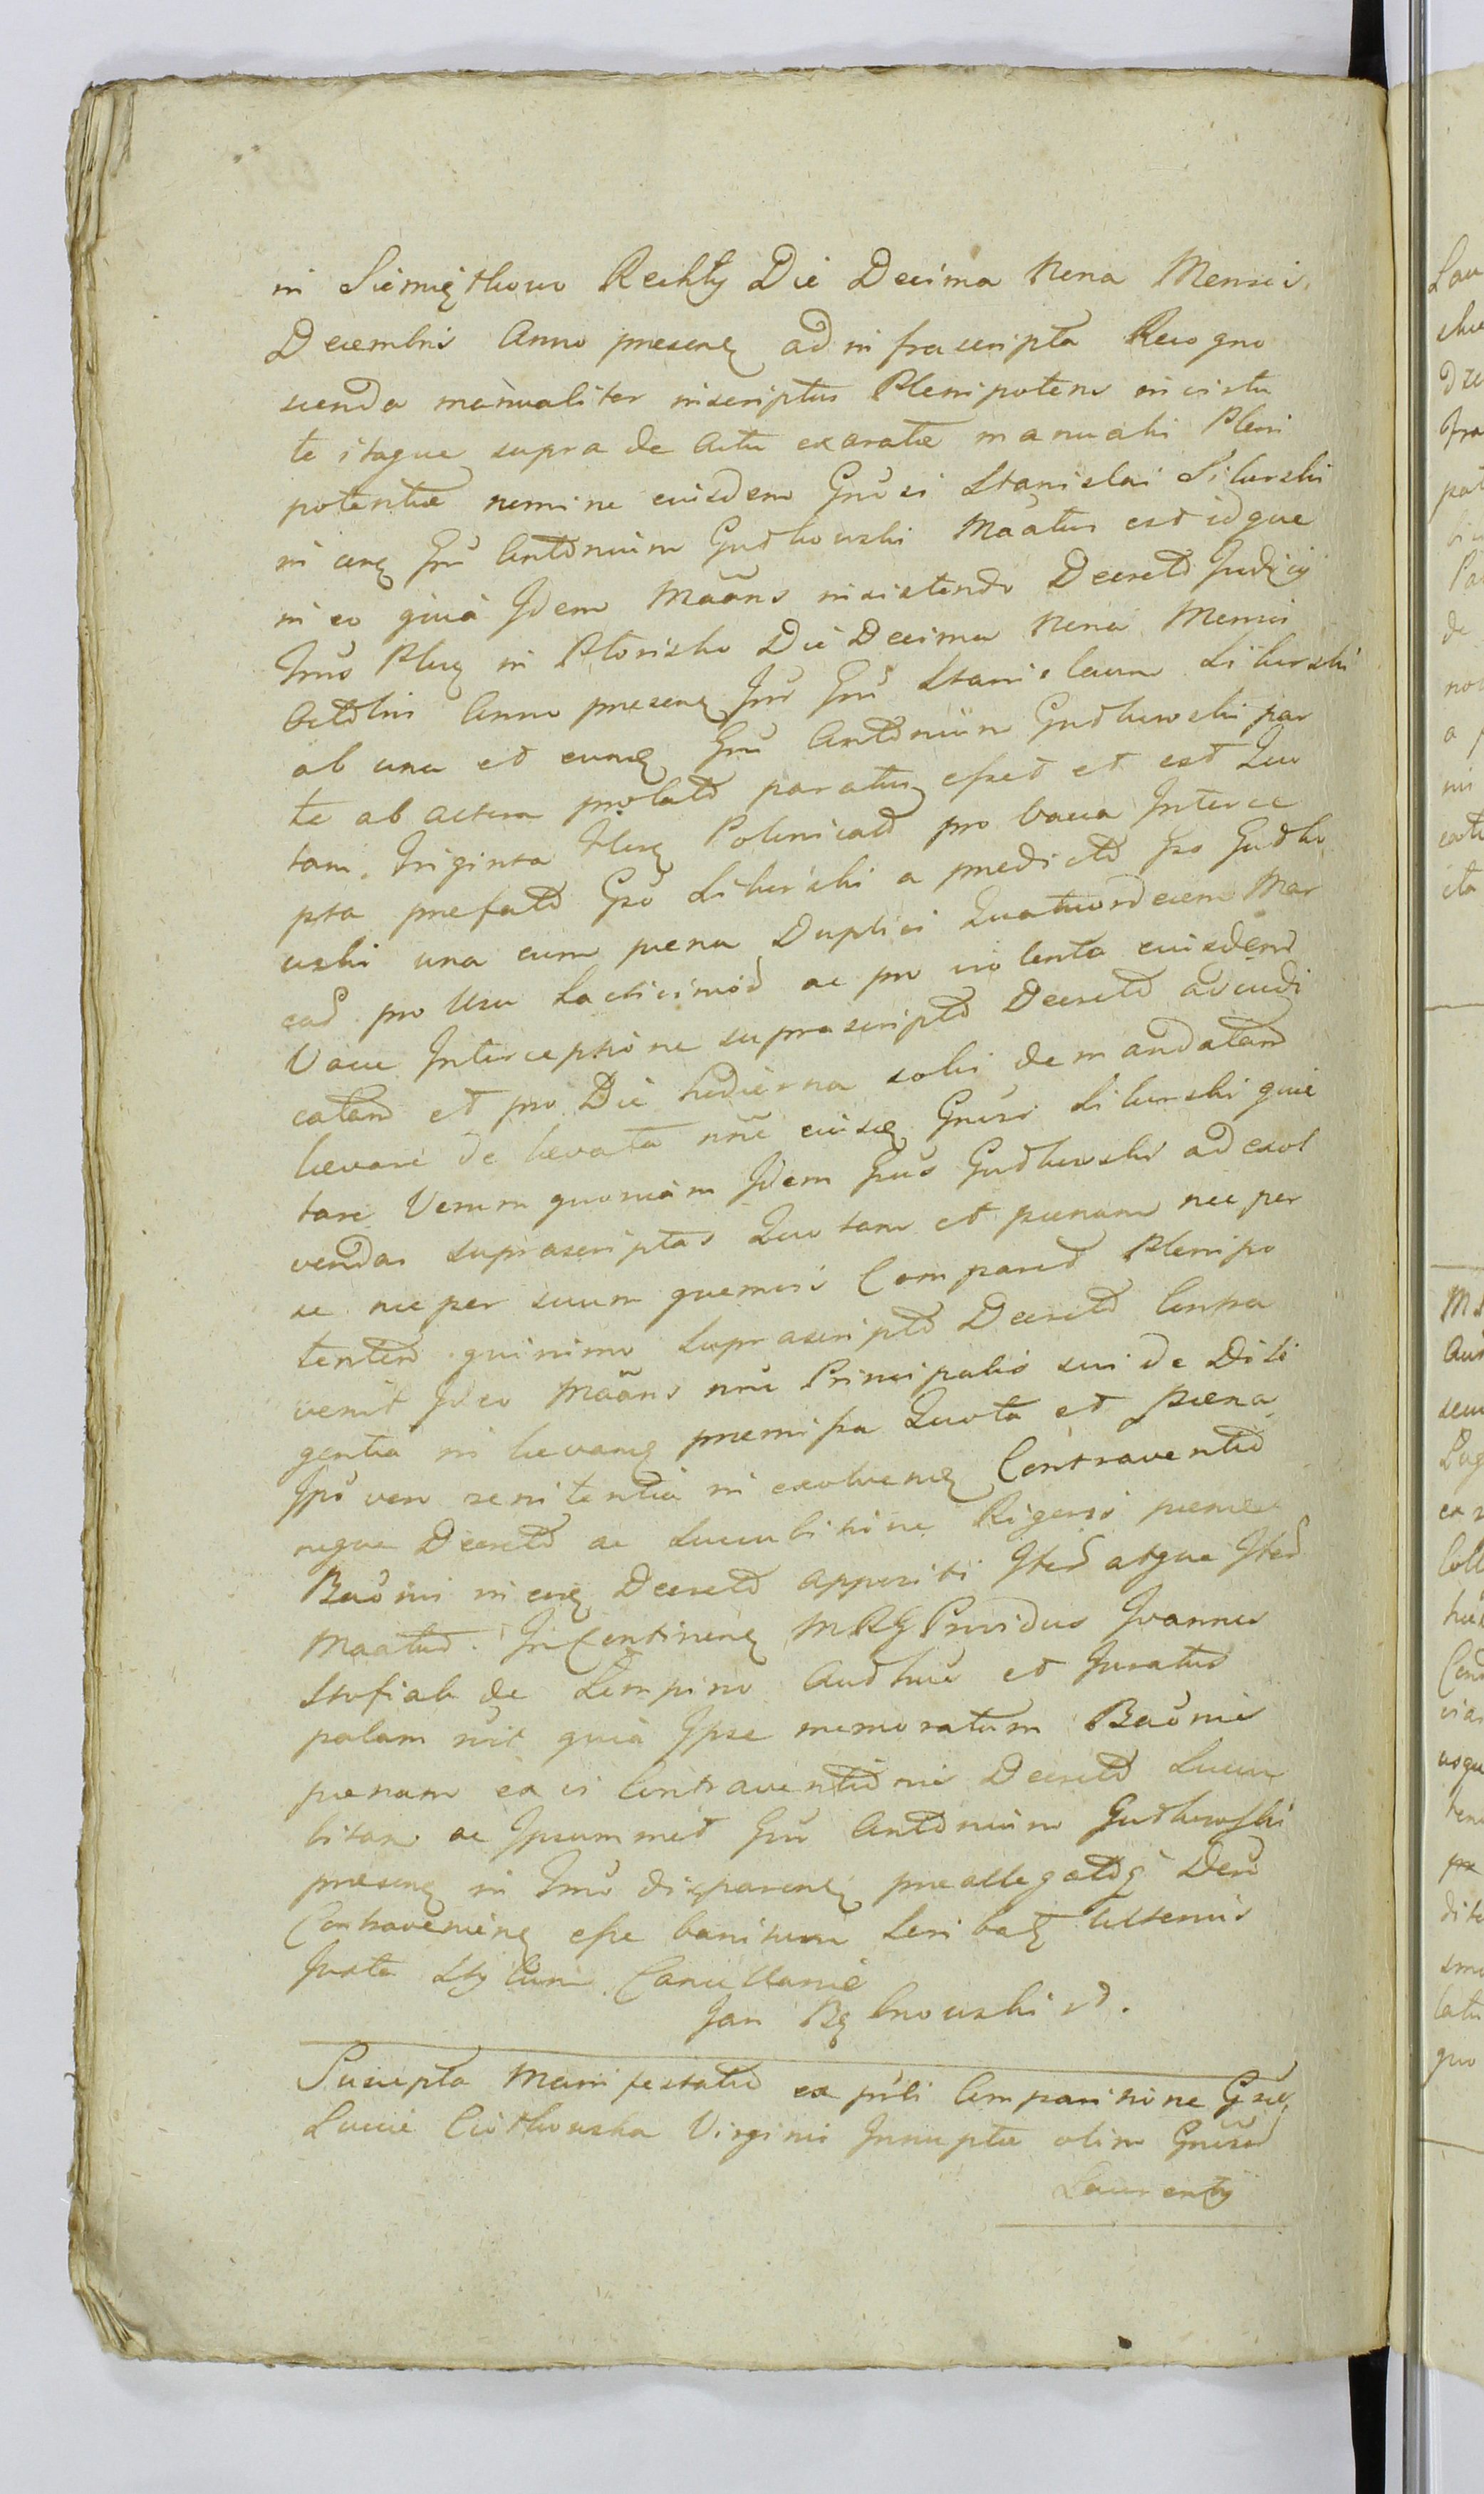 in Siemiątkowo Rechty Die Decima Nona Mensis
Decembris Anno presenẹ ad infrascripta Recogno
scenda manualiter inscriptus Plenipotens in virtu
te itaque supra de Actu exaratæ manualis Pleni
potentiæ nomine eiusdem Gnosi Stanislai Siberski
in cunẹ Gnu Antonium Gudkowski Maatus est idque
in eo quia Idem Maans insistendo Decreto Judicij
Tmo Plnẹ in Płonisko Die Decima Nona Mensis
Octobris Anno presenẹ Int Gnu Stanislaum Siberski
ab una et eunẹ Gnu Antonium Gudkowski par
te ab altera prolato paratus esset et est Quo
tam Triginta flnẹ Polonicad pro Vacca Interce
pta prefato Gso Siberski a predicto Gso Gudko
wski una cum pena Duplici Quatuordecem Mar
cad pro Usu Lacticiniod ac pro violenta eiusdem
Vacce Interceptione suprascripto Decreto adiudi
catam et pro Die hodierna solvi demandatam
levare de levata nne eiusẹ Gnosi Siberski quie
tare Verum quoniam Idem Gnus Gudkowski ad exol
vendas suprascriptas Quotam et pœnam nec per
se nec per suum quemvis Comparuit Plenipo
tentem quinimo Suprascripto Decreto Contra
venit Ideo Maans nne Principalis sui de Dili
gentia in levanẹ premissa Quota et pœna
Ipso vero renitentia in exolvenẹ Contraventio
neque Decreto ac Succubitione Rigorosi pœnæ
Baonis in eoẹ Decreto appositi Ited atque Ited
Maatus. In Continenẹ MRG Providus Joannes
Stofiak de Lempino Audkus et Juratus
palam rit quia Ipse memoratum Baonis
pœnam ex vi Contraventionis Decreto Succu
bitam ac Ipsummet Gnu Antonium Gudkowski
presenẹ in Tmo disparenẹ preallegatoẹ Deto
Contravenienẹ esse banitum Scribaẹ Ulterius
Juxta Stylum Cancellariæ
Jan Bębnowski vd.
Suscepta Manifestatio ex pnli Comparitione Gsæ
Luciæ Ciotkowska Virginis Innuptæ olim Gnosod
Laurentij